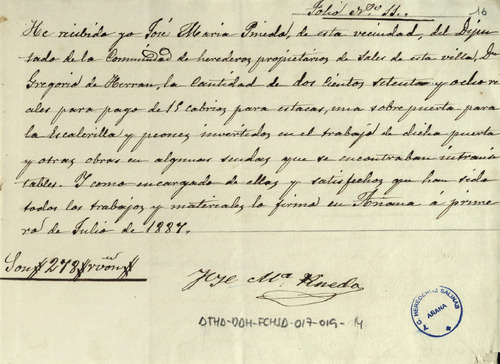 Folio Nº. 11.
16
He recibido yo José Maria Pineda, de esta vecindad, del Dipu
tado de la Comunidad de herederos propietarios de Sales de esta villa, Dn
Gregorio de Herran, la Cantidad de dos cientos setenta y ocho re
ales para pago de 15 cabrios para estacas, una sobrepuerta para
la Escalerilla y peones invertidos en el trabajo de dicha puerta
y otras obras en algunas sendas que se encontraban intransi
tables. Y como encargado de ellas y satisfechos que han sido
todos los trabajos y materiales lo firma en Añana a prime
ro de Julio de 1887.
Son 278 rvon
Jose Mª Pineda
DTHA-DAH-FCHSA-017-019-14
A.C. HEREDEROS SALINAS
AÑANA